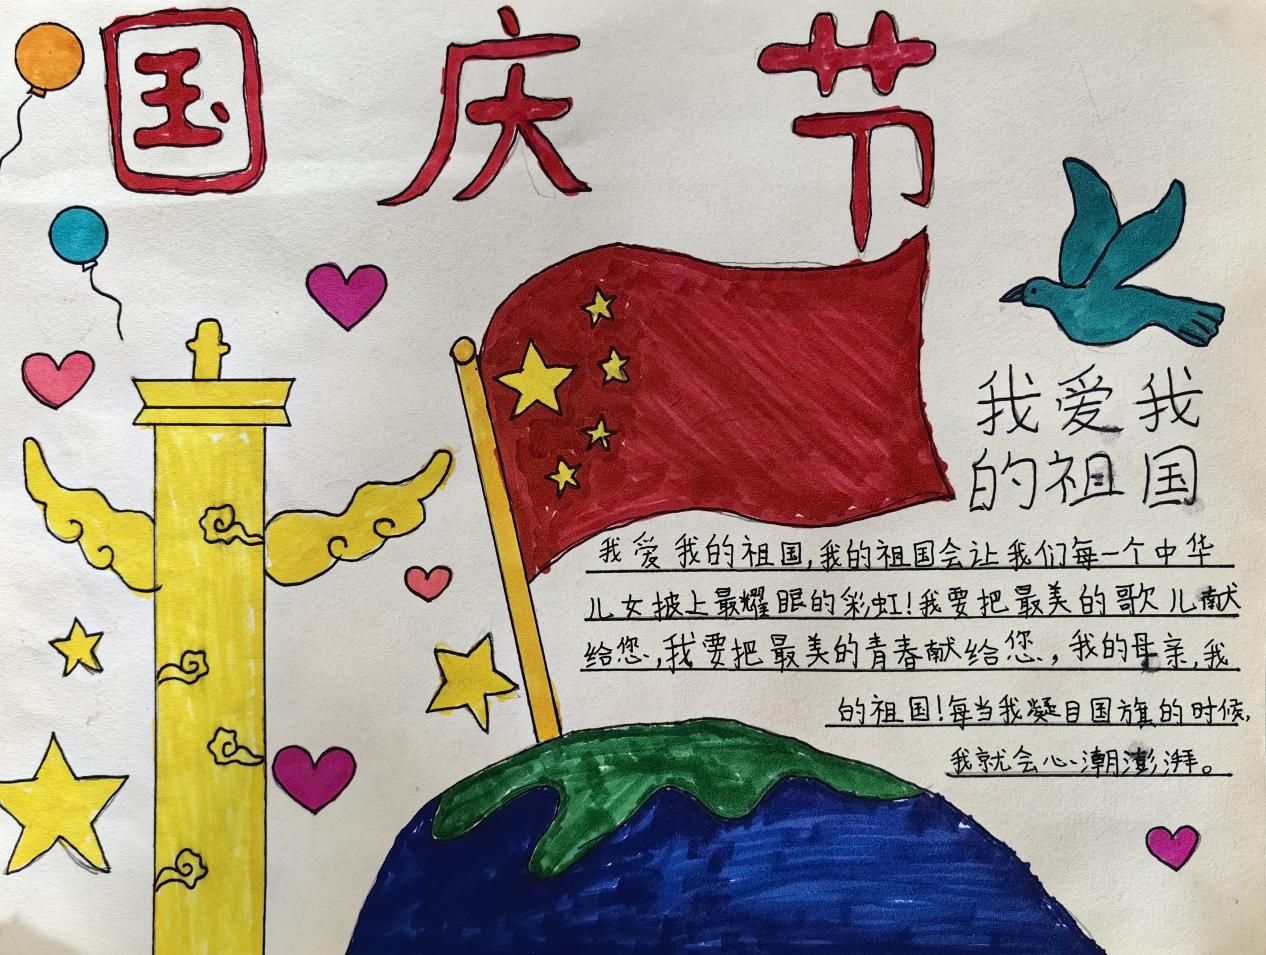 国庆节
我爱我
的祖国
我爱我的祖国,我的祖国会让我们每一个中华
儿女披上最耀眼的彩虹!我要把最美的歌儿献
给您,我要把最美的青春献给您,我的母亲,我
的祖国!每当我凝目国旗的时候,
我就会心潮澎湃。